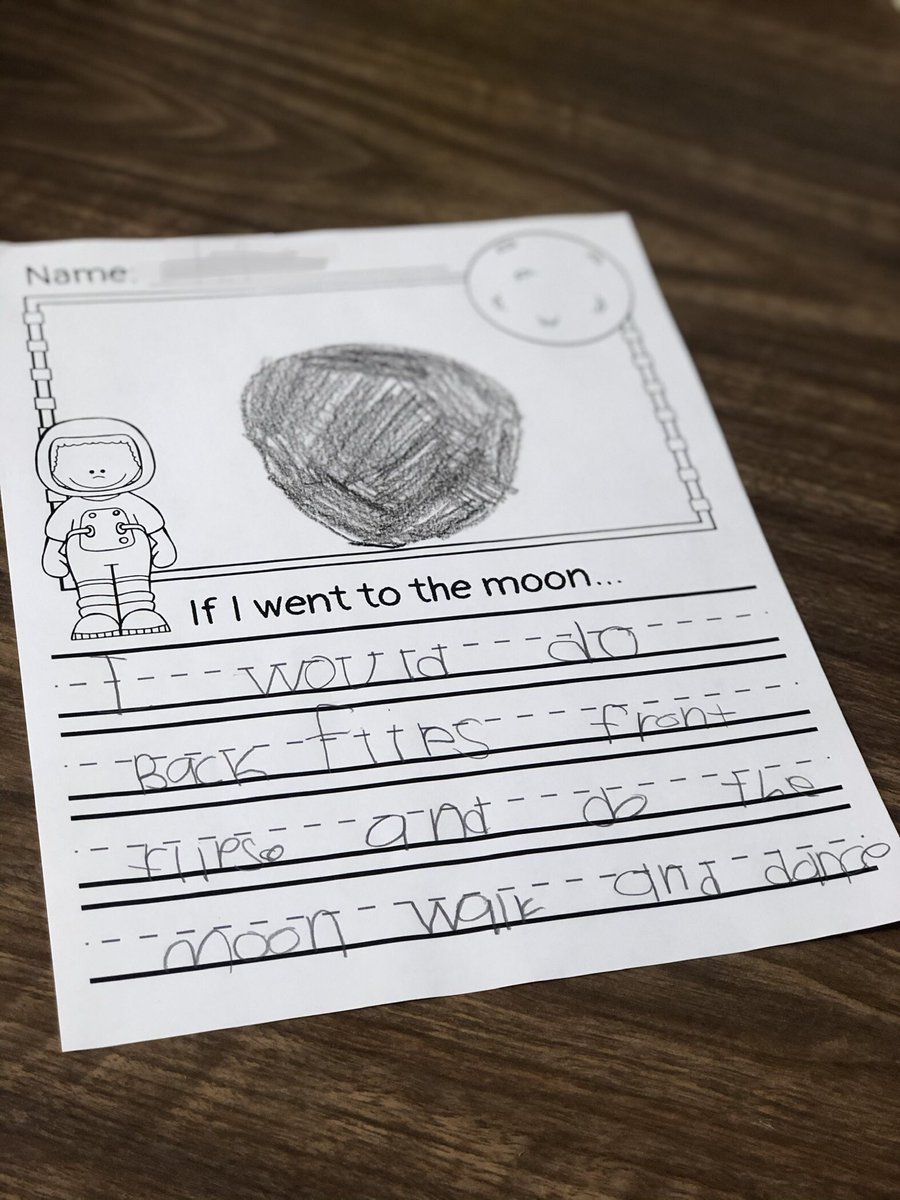 Name:
If I went to the moon...
I would do
Back flips front
flips and do the
moon walk and dance